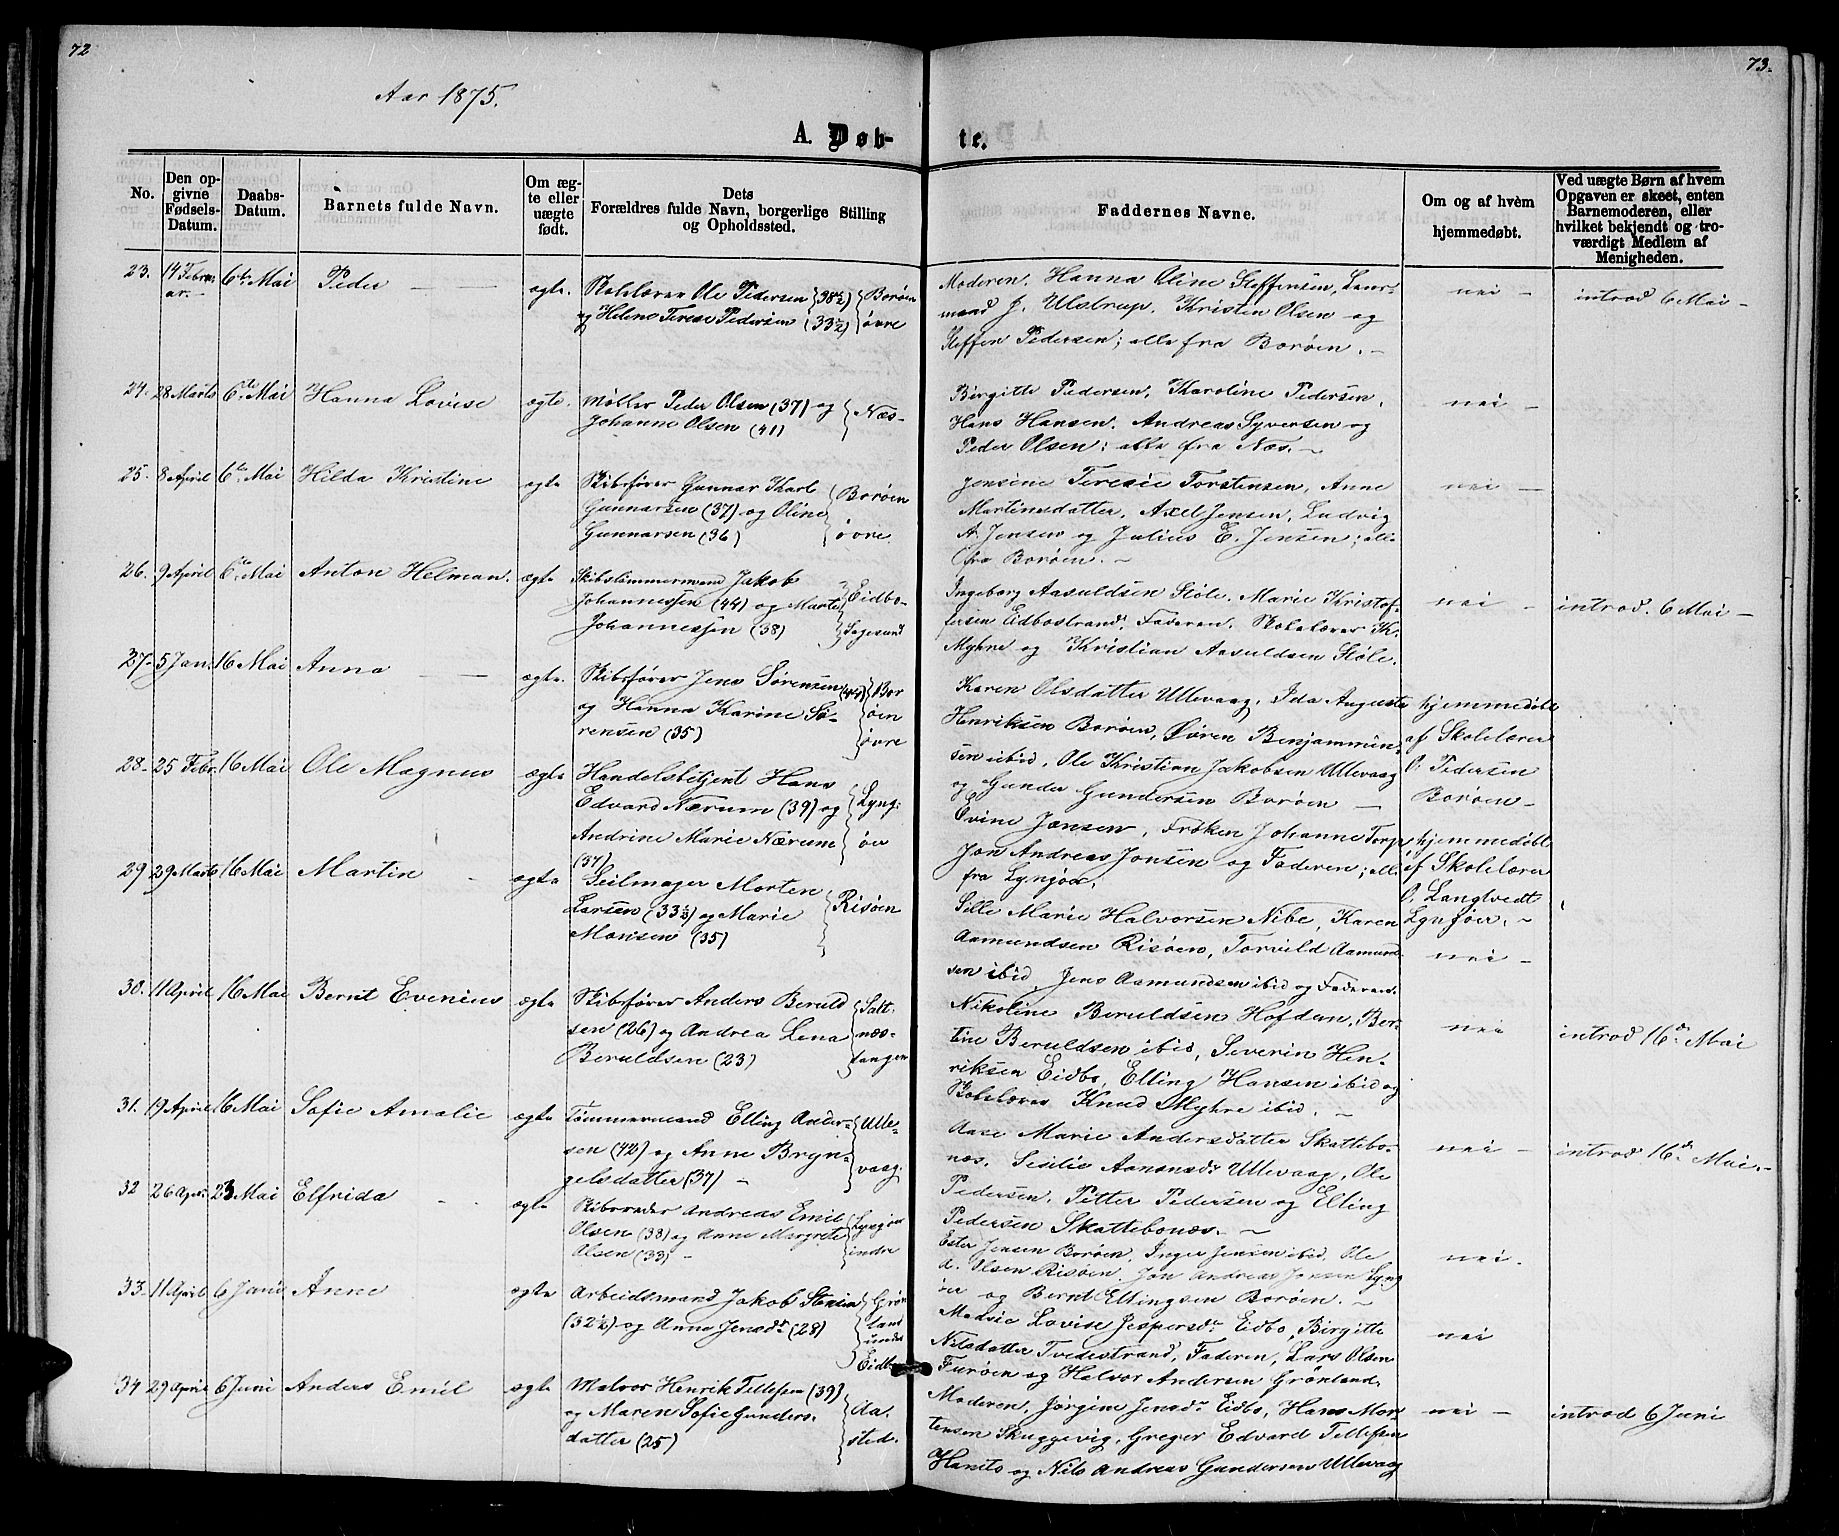 72
73.
Aar 1875.
A. Døb-
te.
No.
Den op-
givne
Fødsels-
Datum.
Daabs-
Datum.
Barnets fulde Navn.
Om æg-
te eller
uægte
født.
Dets
Forældres fulde Navn, borgerlige Stilling
og Opholdssted.
Faddernes Navne.
Om og af hvem
hjemmedøbt.
Ved uægte Børn af hvem
Opgaven er skeet, enten
Barnemoderen, eller
hvilket bekjendt og tro-
værdigt Medlem af
Menigheden.
23. 14 Febru-
ar.
6te Mai
Peder
ægte.
Skolelærer Ole Pedersen (38½)
og Helene Terese Pedersen (33½)
Borøen
øvre
Moderen, Hanna Oline Steffensen, Lens-
mand J. Ulstrup, Kristen Olsen og
Steffen Pedersen; alle fra Borøen.
nei
introd 6 Mai
24. 28 Marts 6te Mai
Hanna Lovise
ægte.
Møller Peder Olsen (37) og
Johanne Olsen (41)
Næs
Birgitte Pedersen, Karoline Pedersen,
Hans Hansen, Andreas Syversen og
Peder Olsen; alle fra Næs.
nei
25. 8 April 6te Mai
Hilda Kristine
ægte
Skibsfører Gunnar Karl
Gunnarsen (37) og Oline
Gunnarsen (36)
Borøen
øvre
Jensine Teresie Torstensen, Anne
Martinsdatter, Axel Jensen, Ludvig
A. Jensen og Julius E. Jensen; alle
fra Borøen.
nei
26. 9 April 6te Mai
Anton Helman.
ægte
Skibstømmermand Jakob
Johannessen (44) og Marte
Johannessen (38)
Eidbo-
Sagesund
Ingeborg Aasuldsen Støle, Marie Kristof-
fersen Eidbostrand, Faderen, Skolelærer K.
Myhre og Kristian Aasuldsen Støle.
nei
introd. 6 Mai
27 5 Jan. 16 Mai
Anna
ægte.
Skibsfører Jens Sørensen (44)
og Hanna Karine Sø-
rensen (35)
Bor
øen
øvre
Karen Olsdatter Ullevaag, Ida Auguste
Henriksen Borøen, Søren Benjamin-
sen ibid, Ole Kristian Jakobsen Ullevaag
og Gunder Gundersen Borøen
hjemmedøbt
af Skolelærer
O. Pedersen
Borøen
28 25 Febr. 16 Mai
Ole Magnus
ægte
Handelsbetjent Hans
Edvard Nærum (39) og
Andrine Marie Nærum
(37)
Lyng-
øer
Evine Jansen, Frøken Johanne Torp,
Jon Andreas Jonsen og Faderen; alle
fra Lyngøer.
hjemmedøbt
af Skolelærer
O. Langtvedt
Lyngøer.
29 29 Marts 16 Mai
Martin
ægte
Seilmager Morten
Larsen (33½) og Marie
Monsen (35)
Risøen
Sille Marie Halvorsen Nibe, Karen
Aamundsen Risøen, Torvild Aamund-
sen ibid, Jens Aamundsen ibid og Faderen.
nei
30. 11 April 16 Mai
Bernt Evenius
ægte
Skibsfører Anders Beruld
sen (26) og Andrea Lena
Beruldsen (23)
Salt-
næs-
tangen
Nikoline Beruldsen Hofdan, Ber-
tine Beruldsen ibid, Severin Hen-
riksen Eidbo, Elling Hansen ibid og
Skolelærer Knud Myhre ibid.
nei
introd 16de Mai
31. 19 April 16 Mai
Sofie Amalie
ægte
Tømmermand Elling Ander-
sen (42) og Anne Bryn-
gelsdatter (37)
Ulle-
vaag
Aase Marie Andersdatter Skattebo-
næs, Sesilie Aanonsdr Ullevaag, Ole
Pedersen, Petter Pedersen og Elling
Pedersen Skattebonæs.
nei
introd 16de Mai.
32 26 Apr. 23 Mai
Elfrida
ægte
Skibsreder Andreas Emil
Olsen (33) og Anne Margrete
Olsen (33)
Lyngøer
indre
Ester Jensen Borøen, Inger Jensen ibid, Ole
A. Olsen Risøen, Jon Andreas Jonsen Lyng
øer og Bernt Ellingsen Borøen.
nei.
33. 11 April 6 Juni
Anne
ægte
Arbeidsmand Jakob Stensen
(32½) og Anne Jensdr (28)
Grøn
land
under
Eidbo
Madsie Lovise Jespersdr Eidbo, Birgitte
Nilsdatter Tvedestrand, Faderen, Lars Olsen
Furøen og Halvor Andersen Grønland,
nei
34 29 April 6 Juni
Anders Emil
ægte
Matros Henrik Tellefsen (39)
og Maren Sofie Gunders-
datter (25)
Aa-
sted.
Moderen, Jørgine Jensdr Eidbo, Hans Mor-
tensen Skuggevig, Greger Edvard Tellefsen
Hanto og Nils Andreas Gundersen Ullevaag
nei
introd 6 Juni